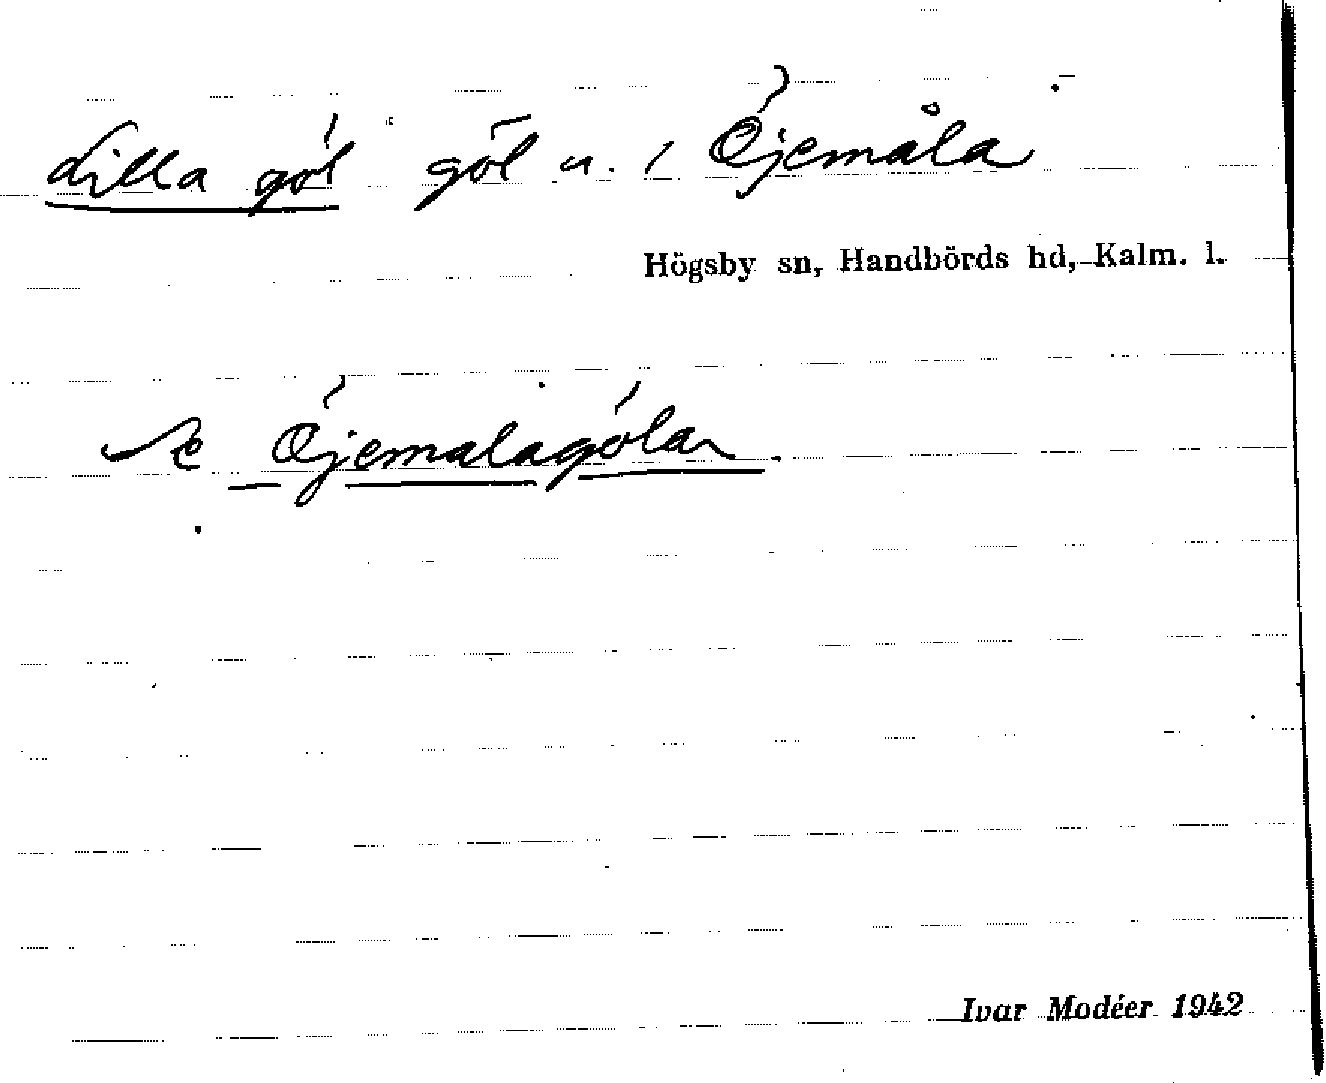 Lilla göl göl n. i Öjemåla
Högsby sn, Handbörds hd, Kalm. l.
Se Öjemålagölar.
Ivar Modéer 1942